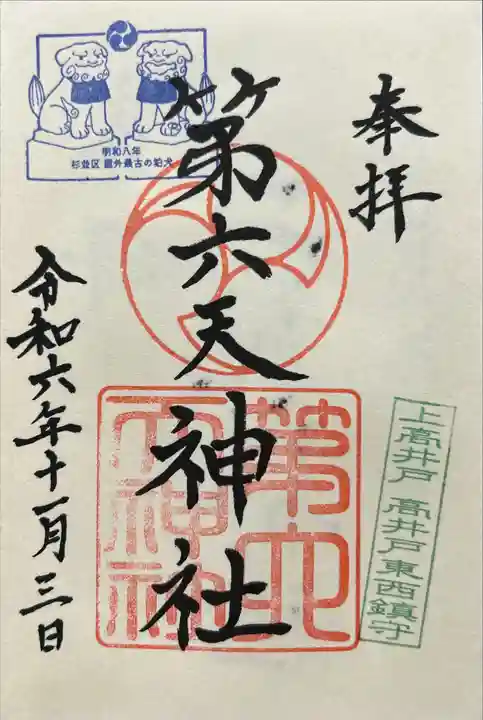 奉拝
上高井戸 高井戸東西鎮守
第六天神社
第六天神社
明和八年
杉並区 最古の狛犬
令和六年十一月三日